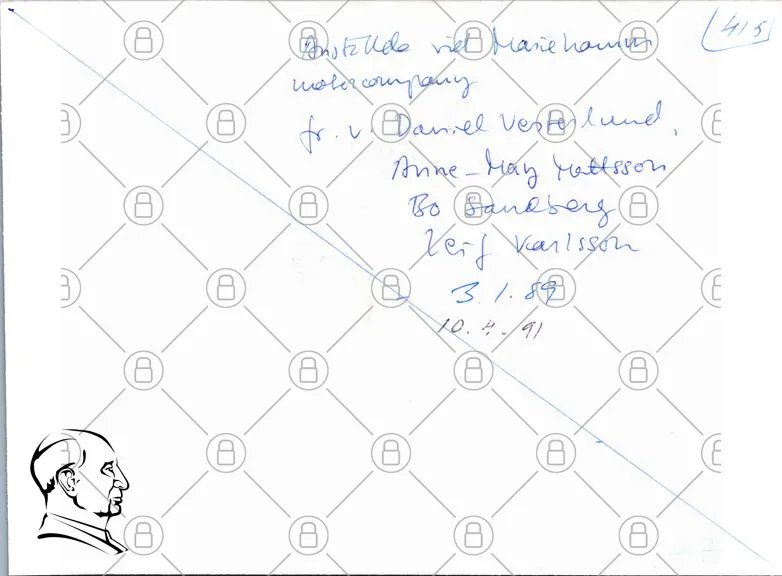 415
Anställda vid Mariehamns
motorcompany
fr. v. Daniel Vesterlund,
Anne-May Mattsson
Bo Sandberg
Leif Karlsson
3.1.89
10.4.91